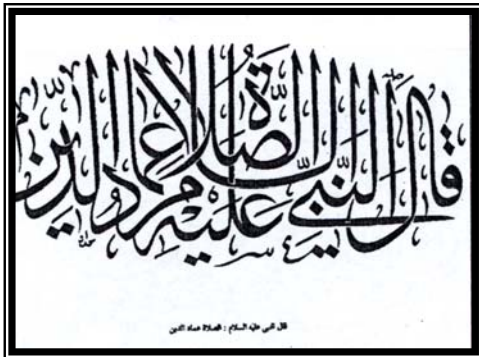 قال النبي عليه السلام الصلاة عماد الدين
قال النبي عليه السلام : الصلاة عماد الدين